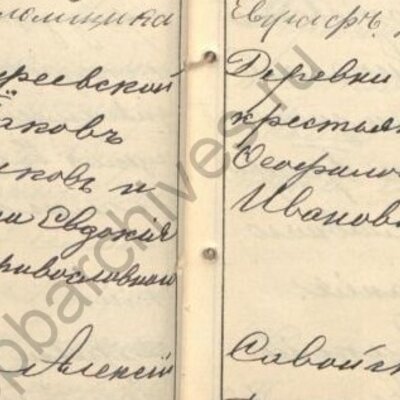 ломщика
реевской
Яковъ
ковъ и
на Евдокія
равославнаго
Алексій
Евграфъ
Деревни
крестьян
Ѳеофилов
Иванов
Савой
spbarchives.ru